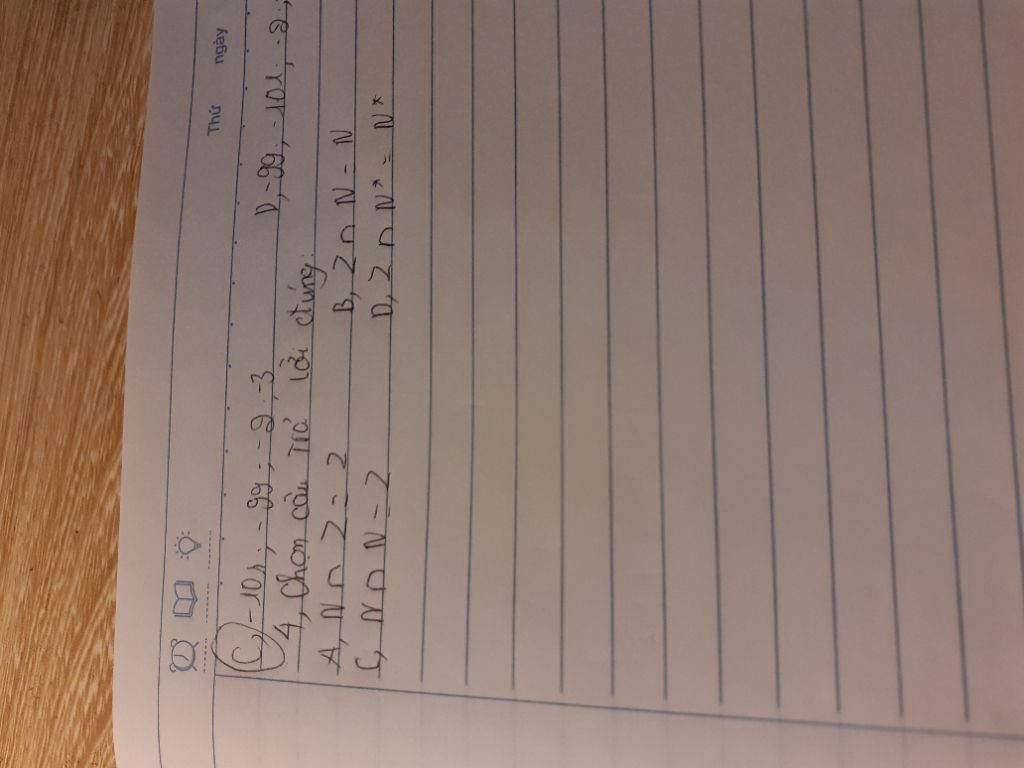 Thứ ngày
C, -101, -99, -2, -3 D, -99, -101, -2,
4, Chọn câu trả lời đúng:
A, N ∩ Z = Z B, Z ∩ N = N
C, N ∩ N = Z D, Z ∩ N* = N*